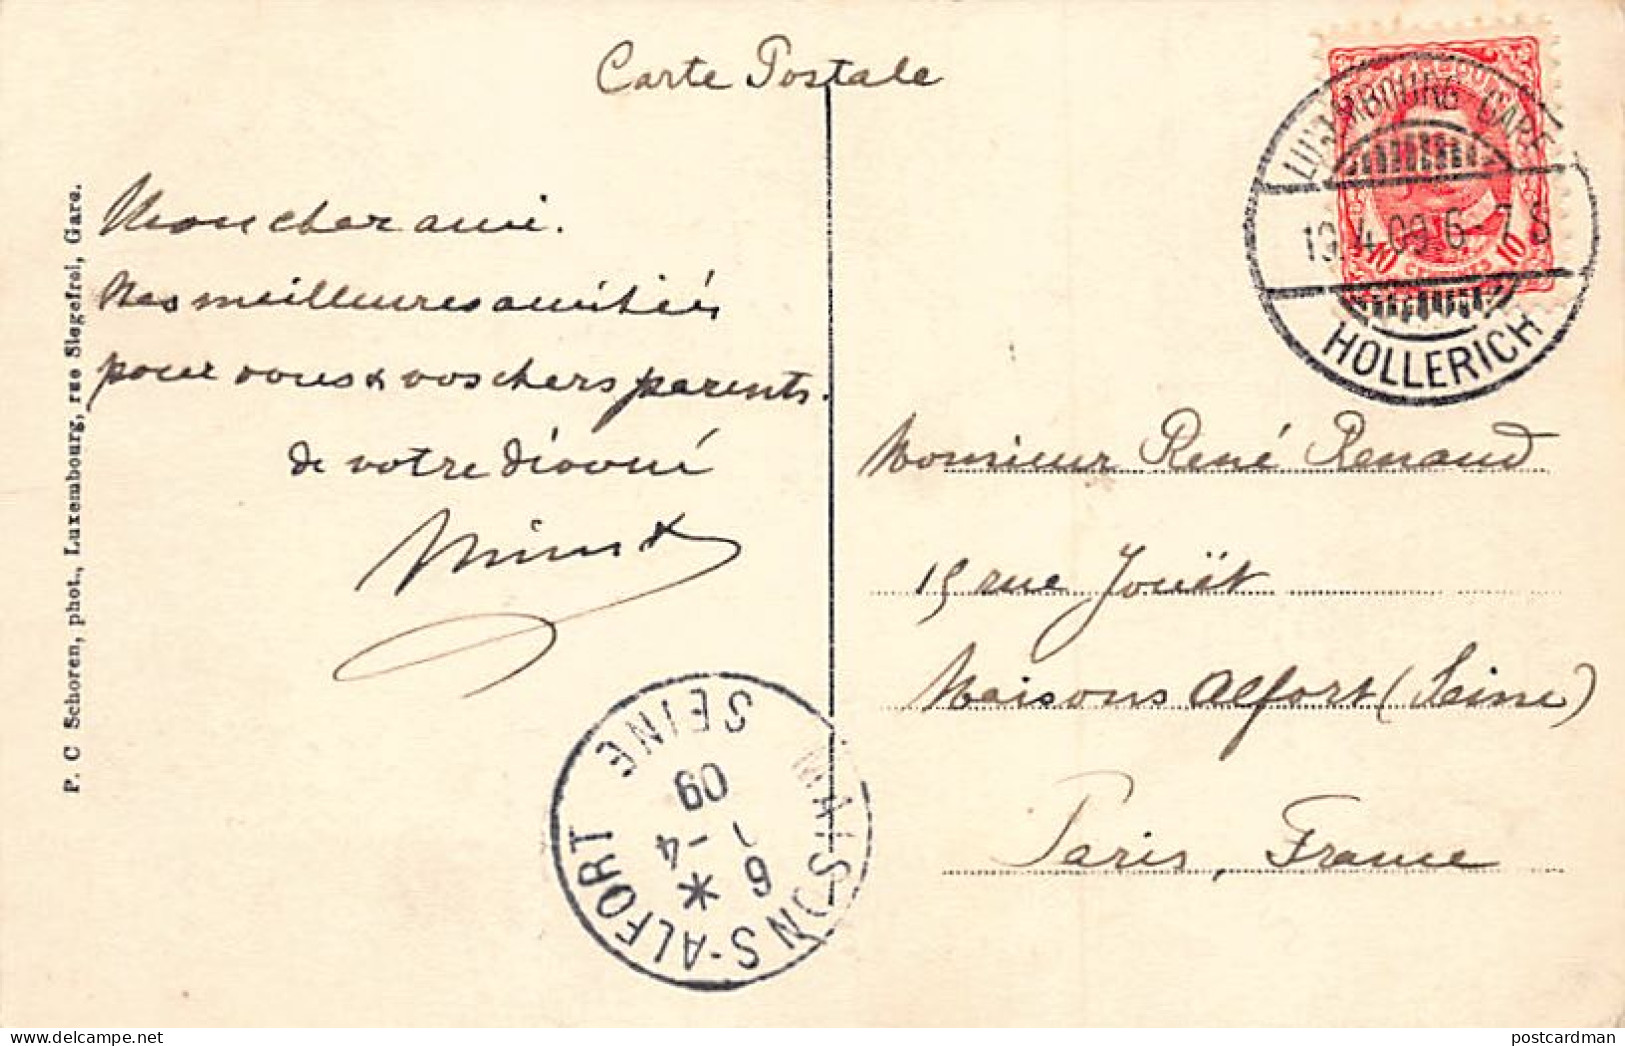 Carte Postale
Mon cher ami.
Nos meilleures amitiés
pour vous & vos chers parents.
de votre dévoué
P. C Schoren, phot., Luxembourg, rue Siegefroi, Gare.
LUXEMBOURG GARE
19.4.09.6-7S
HOLLERICH
10 CENTIMES 10
Monsieur René Renaud
15 rue Jouët
Maisons Alfort (Seine)
Paris, France
MAISONS-ALFORT
-4
09
SEINE
delcampe.net
postcardman